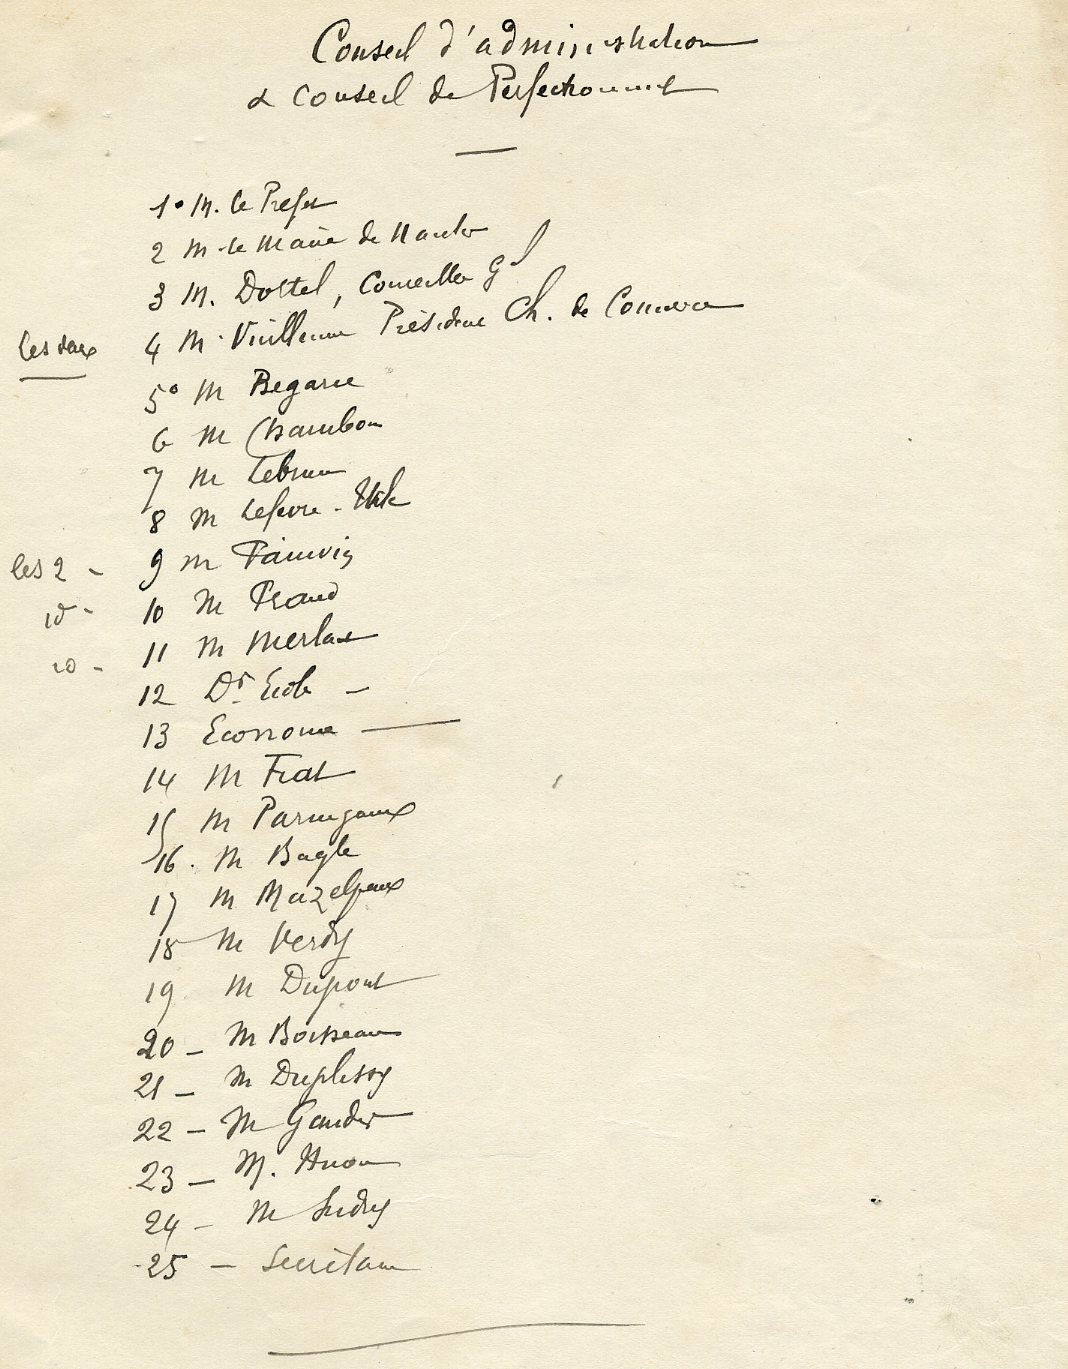 Conseil d'administration
& Conseil de Perfectionnemt
1° M. le Préfet
2 M. le Maire de Nantes
3 M. Dortel, Conseiller Gl
les deux 4 M. Vuillemin Président Ch. de Commerce
5° M Begarie
6 M Chambon
7 M Lebrun
8 M Lefevre-Utile
les 2 - 9 M Fauvin
id - 10 M Praud
id - 11 M Merlant
12 Dr. Ecole -
13 Econome
14 M Frat
15 M
16. M Bagle
17 M
18 M Verdy
19 M Dupont
20 - M Boisseau
21 - M Duplessy
22 - M Gaudin
23 - M. Huon
24 - M Sudry
25 - Secrétaire